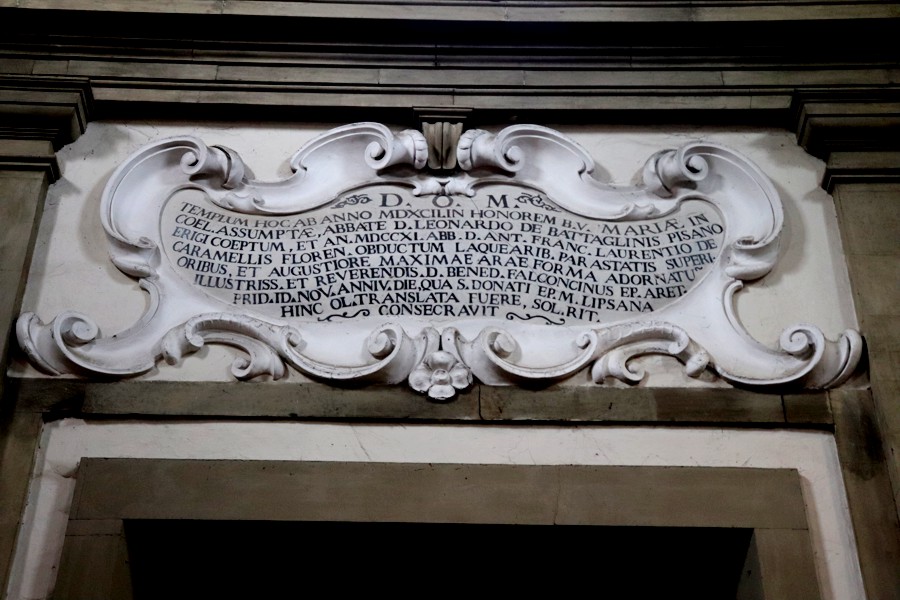 D. O. M.
TEMPLUM HOC.AB ANNO MDXCII.IN HONOREM B.V. MARIÆ IN
COEL.ASSUMPTÆ, ABBATE D.LEONARDO DE BATTAGLINIS PISANO
ERIGI COEPTUM, ET AN. MDCCXI. ABB. D. ANT. FRANC. LAURENTIO DE
CARAMELLIS FLOREN. OBDUCTUM LAQUEARIB. PARASTATIS SUPERI-
ORIBUS, ET AUGUSTIORE MAXIMAE ARAE FORMA ADORNATU~
ILLUSTRISS. ET REVERENDIS. D. BENED. FALCONCINUS EP. ARET.
PRID. ID. NOV. ANNIV. DIE, QUA S. DONATI EP. M. LIPSANA
HINC OL.TRANSLATA FUERE, SOL. RIT.
CONSECRAVIT